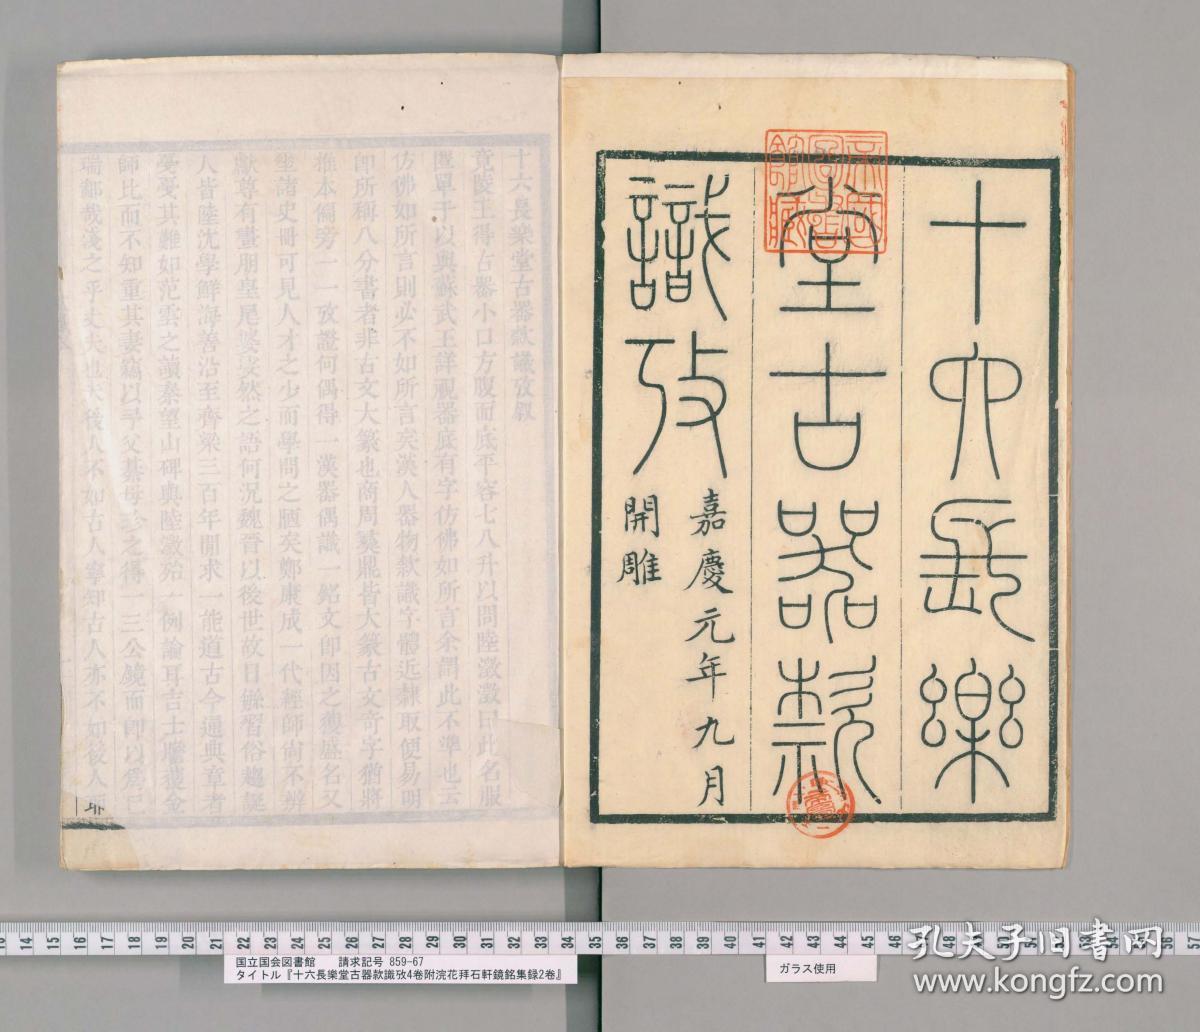 十六長樂
堂古器款
識攷
嘉慶元年九月
開雕
帝國圖書館藏
十六長樂堂古器款識攷叙
竟陵王得古器小口方腹而底平容七八升以問陸澂澂曰此名服
匿單于以與蘇武王詳視器底有字仿佛如所言余謂此不準也云
仿佛如所言則必不如所言矣漢人器物款識字體近隸取便易明
即所稱八分書者非古文大篆也商周彝鼎皆大篆古文奇字猶將
推本偏旁一一攷證何偶得一漢器偶識一銘文即因之獲盛名又
諸史冊可見人才之少而學問之陋矣鄭康成一代經師尚不辨
獻尊有畫朋皇尾婆娑然之語何況魏晉以後世故日繇習俗趨誕
人皆陸沈學鮮海善沿至齊梁三百年閒求一能道古今通典章者
戛戛其難如范雲之讀秦望山碑與陸澂殆一例論耳吉士瞻獲金
師比而不知重其妻籍以尋父綦母珍之得一三公鏡而即以爲己
瑞鄙哉淺之乎丈夫也夫後人不如古人寧知古人亦不如後人耶
13 14 15 16 17 18 19 20 21 22 23 24 25 26 27 28 29 30 31 32 33 34 35 36 37 38 39 40 41 42 43 44 45 46 47 48 49 50 51 52 53 54 55 56 57
国立国会図書館 請求記号 859-67
タイトル『十六長樂堂古器款識攷4卷附浣花拜石軒鏡銘集録2卷』
ガラス使用
孔夫子旧书网
www.kongfz.com